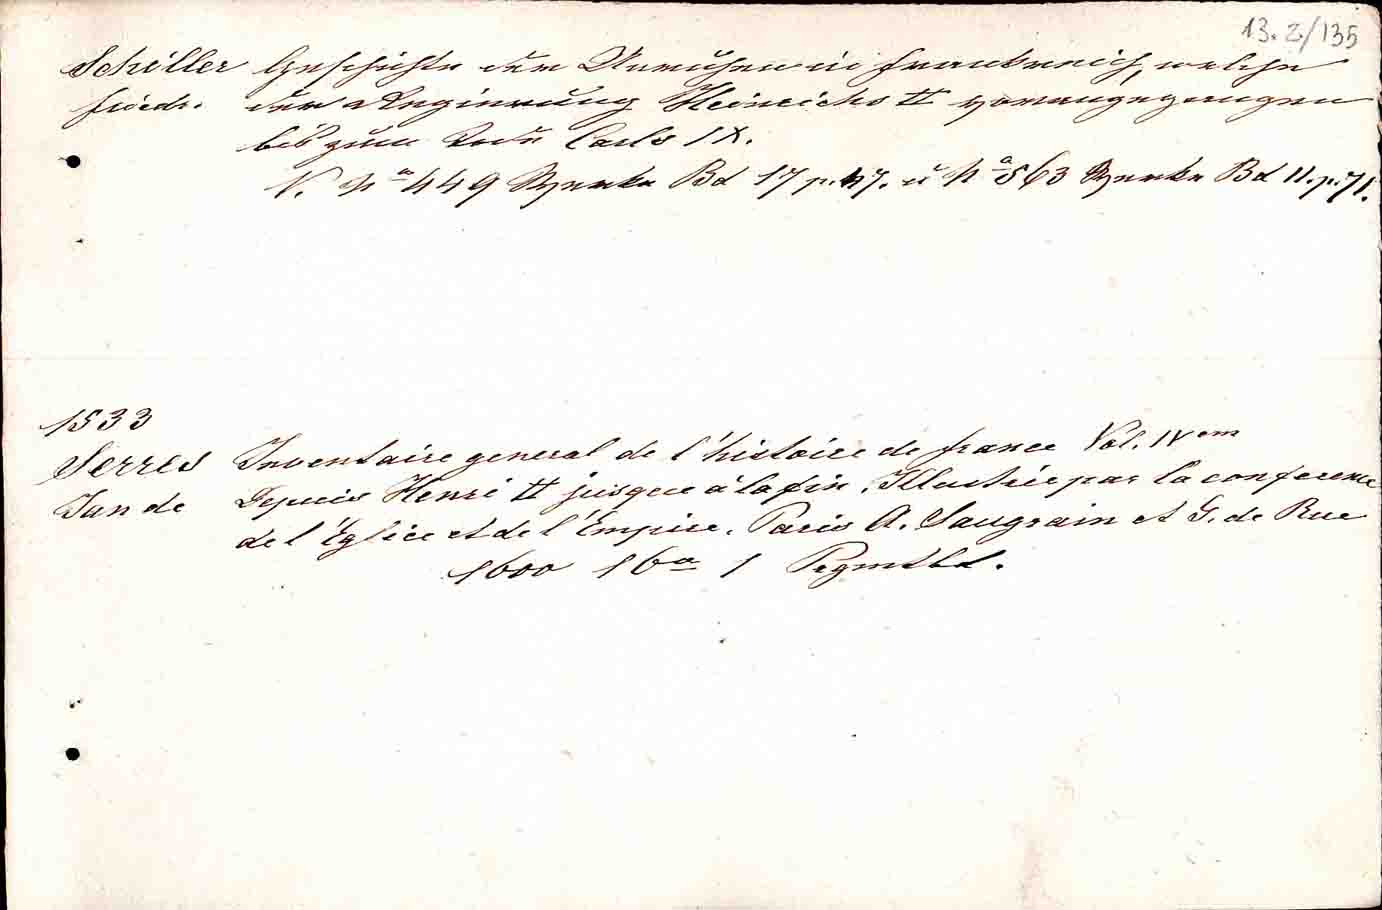 13. 2/135
Schiller Geschichte der Unruhen in Frankreich, welche
Friedr. der Regierung Heinrichs II vorangegangen
bis zum Tode Carls IX.
V. Nº 449 Werke Bd 17 p. 47. u Nº 563 Werke Bd 11. p. 71.
1533
Serres Inventaire general de l'histoire de france Vol. IV em
Jan de Depuis Henri II jusque à la fin. Illustrée par la conference
de l'Églice et de l'Empire. Paris A. Saugrain et G. de Rue
1600 16º 1 Pgmtbd.